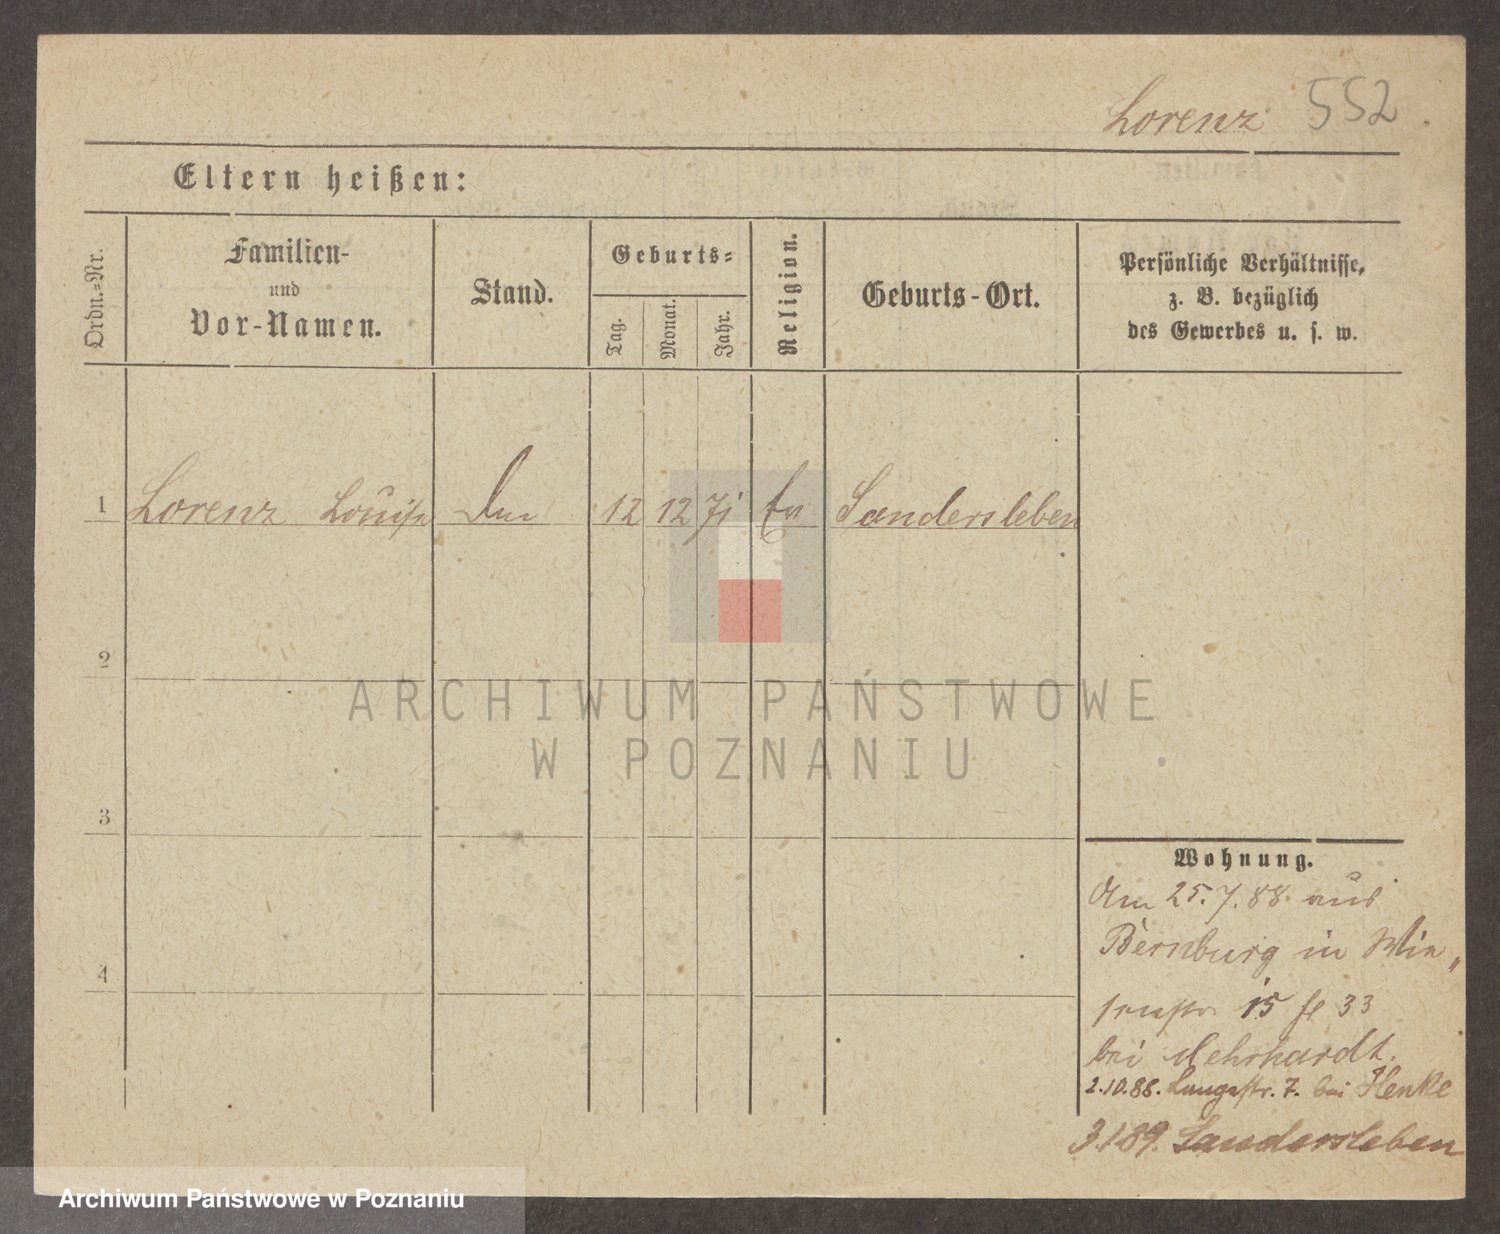 Lorenz 552
Eltern heißen:
Ordn.=Nr.
Familien-
und
Vor-Namen.
Stand.
Geburts=
Tag.
Monat.
Jahr.
Religion.
Geburts-Ort.
Persönliche Verhältnisse,
z. B. bezüglich
des Gewerbes u. s. w.
1 Lorenz Louise 12 12 71 Ev Sandersleben
2
3
4
ARCHIWUM PAŃSTWOWE
W POZNANIU
Wohnung.
Am 25.7.88 aus
Bernburg in
15 33
bei
2.10.88. Langestr. 7. bei Henke
3.1.89. Sandersleben
Archiwum Państwowe w Poznaniu